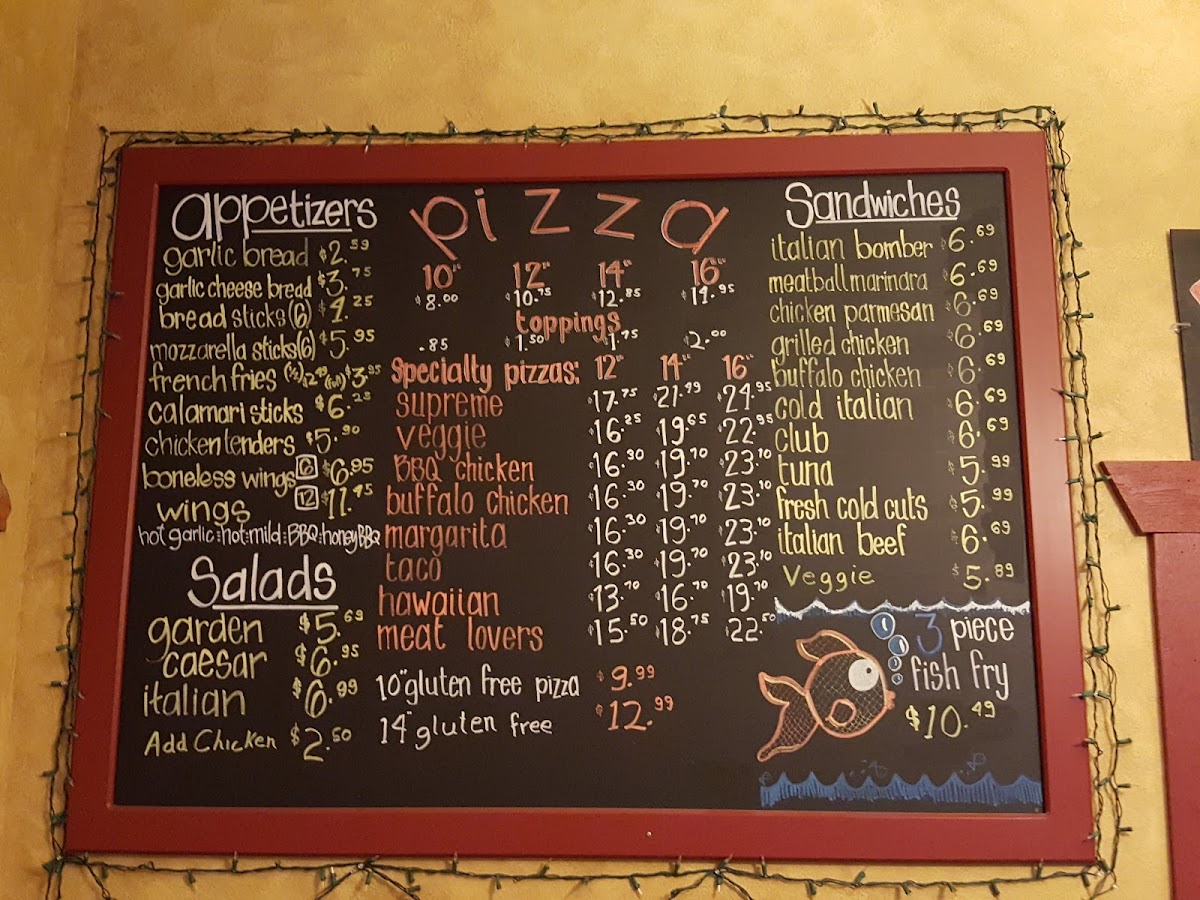 appetizers
garlic bread $2.59
garlic cheese bread $3.75
bread sticks (6) $4.25
mozzarella sticks (6) $5.95
french fries (½) $2.10 (full) $3.95
calamari sticks $6.25
chicken tenders $5.90
boneless wings 6 $6.95
wings 12 $11.95
hot garlic:hot:mild:BBQ:honey BBQ
Salads
garden $5.69
caesar $6.95
italian $6.99
Add Chicken $2.50
pizza
10" 12" 14" 16"
$8.00 $10.75 $12.85 $14.95
toppings
.85 $1.50 $1.75 $2.00
Specialty pizzas: 12" 14" 16"
supreme $17.75 $21.99 $24.95
veggie $16.25 $19.65 $22.95
BBQ chicken $16.30 $19.70 $23.10
buffalo chicken $16.30 $19.70 $23.10
margarita $16.30 $19.70 $23.10
taco $16.30 $19.70 $23.10
hawaiian $13.70 $16.70 $19.70
meat lovers $15.50 $18.75 $22.50
10" gluten free pizza $9.99
14" gluten free $12.99
Sandwiches
italian bomber $6.69
meatball marinara $6.69
chicken parmesan $6.69
grilled chicken $6.69
buffalo chicken $6.69
cold italian $6.69
club $6.69
tuna $5.99
fresh cold cuts $5.99
italian beef $6.69
Veggie $5.89
3 piece
fish fry
$10.49